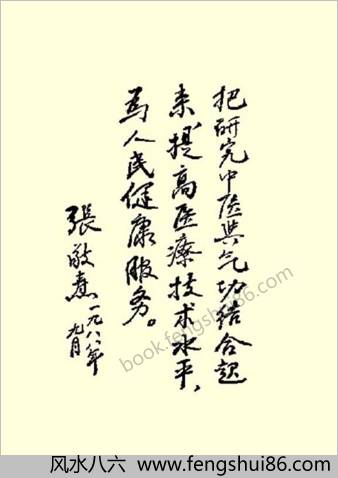 把研究中医与气功结合起
来，提高医療技术水平，
为人民健康服务。
張敬熹一九八八年
九月
book.fengshui86.com
风水八六 www.fengshui86.com